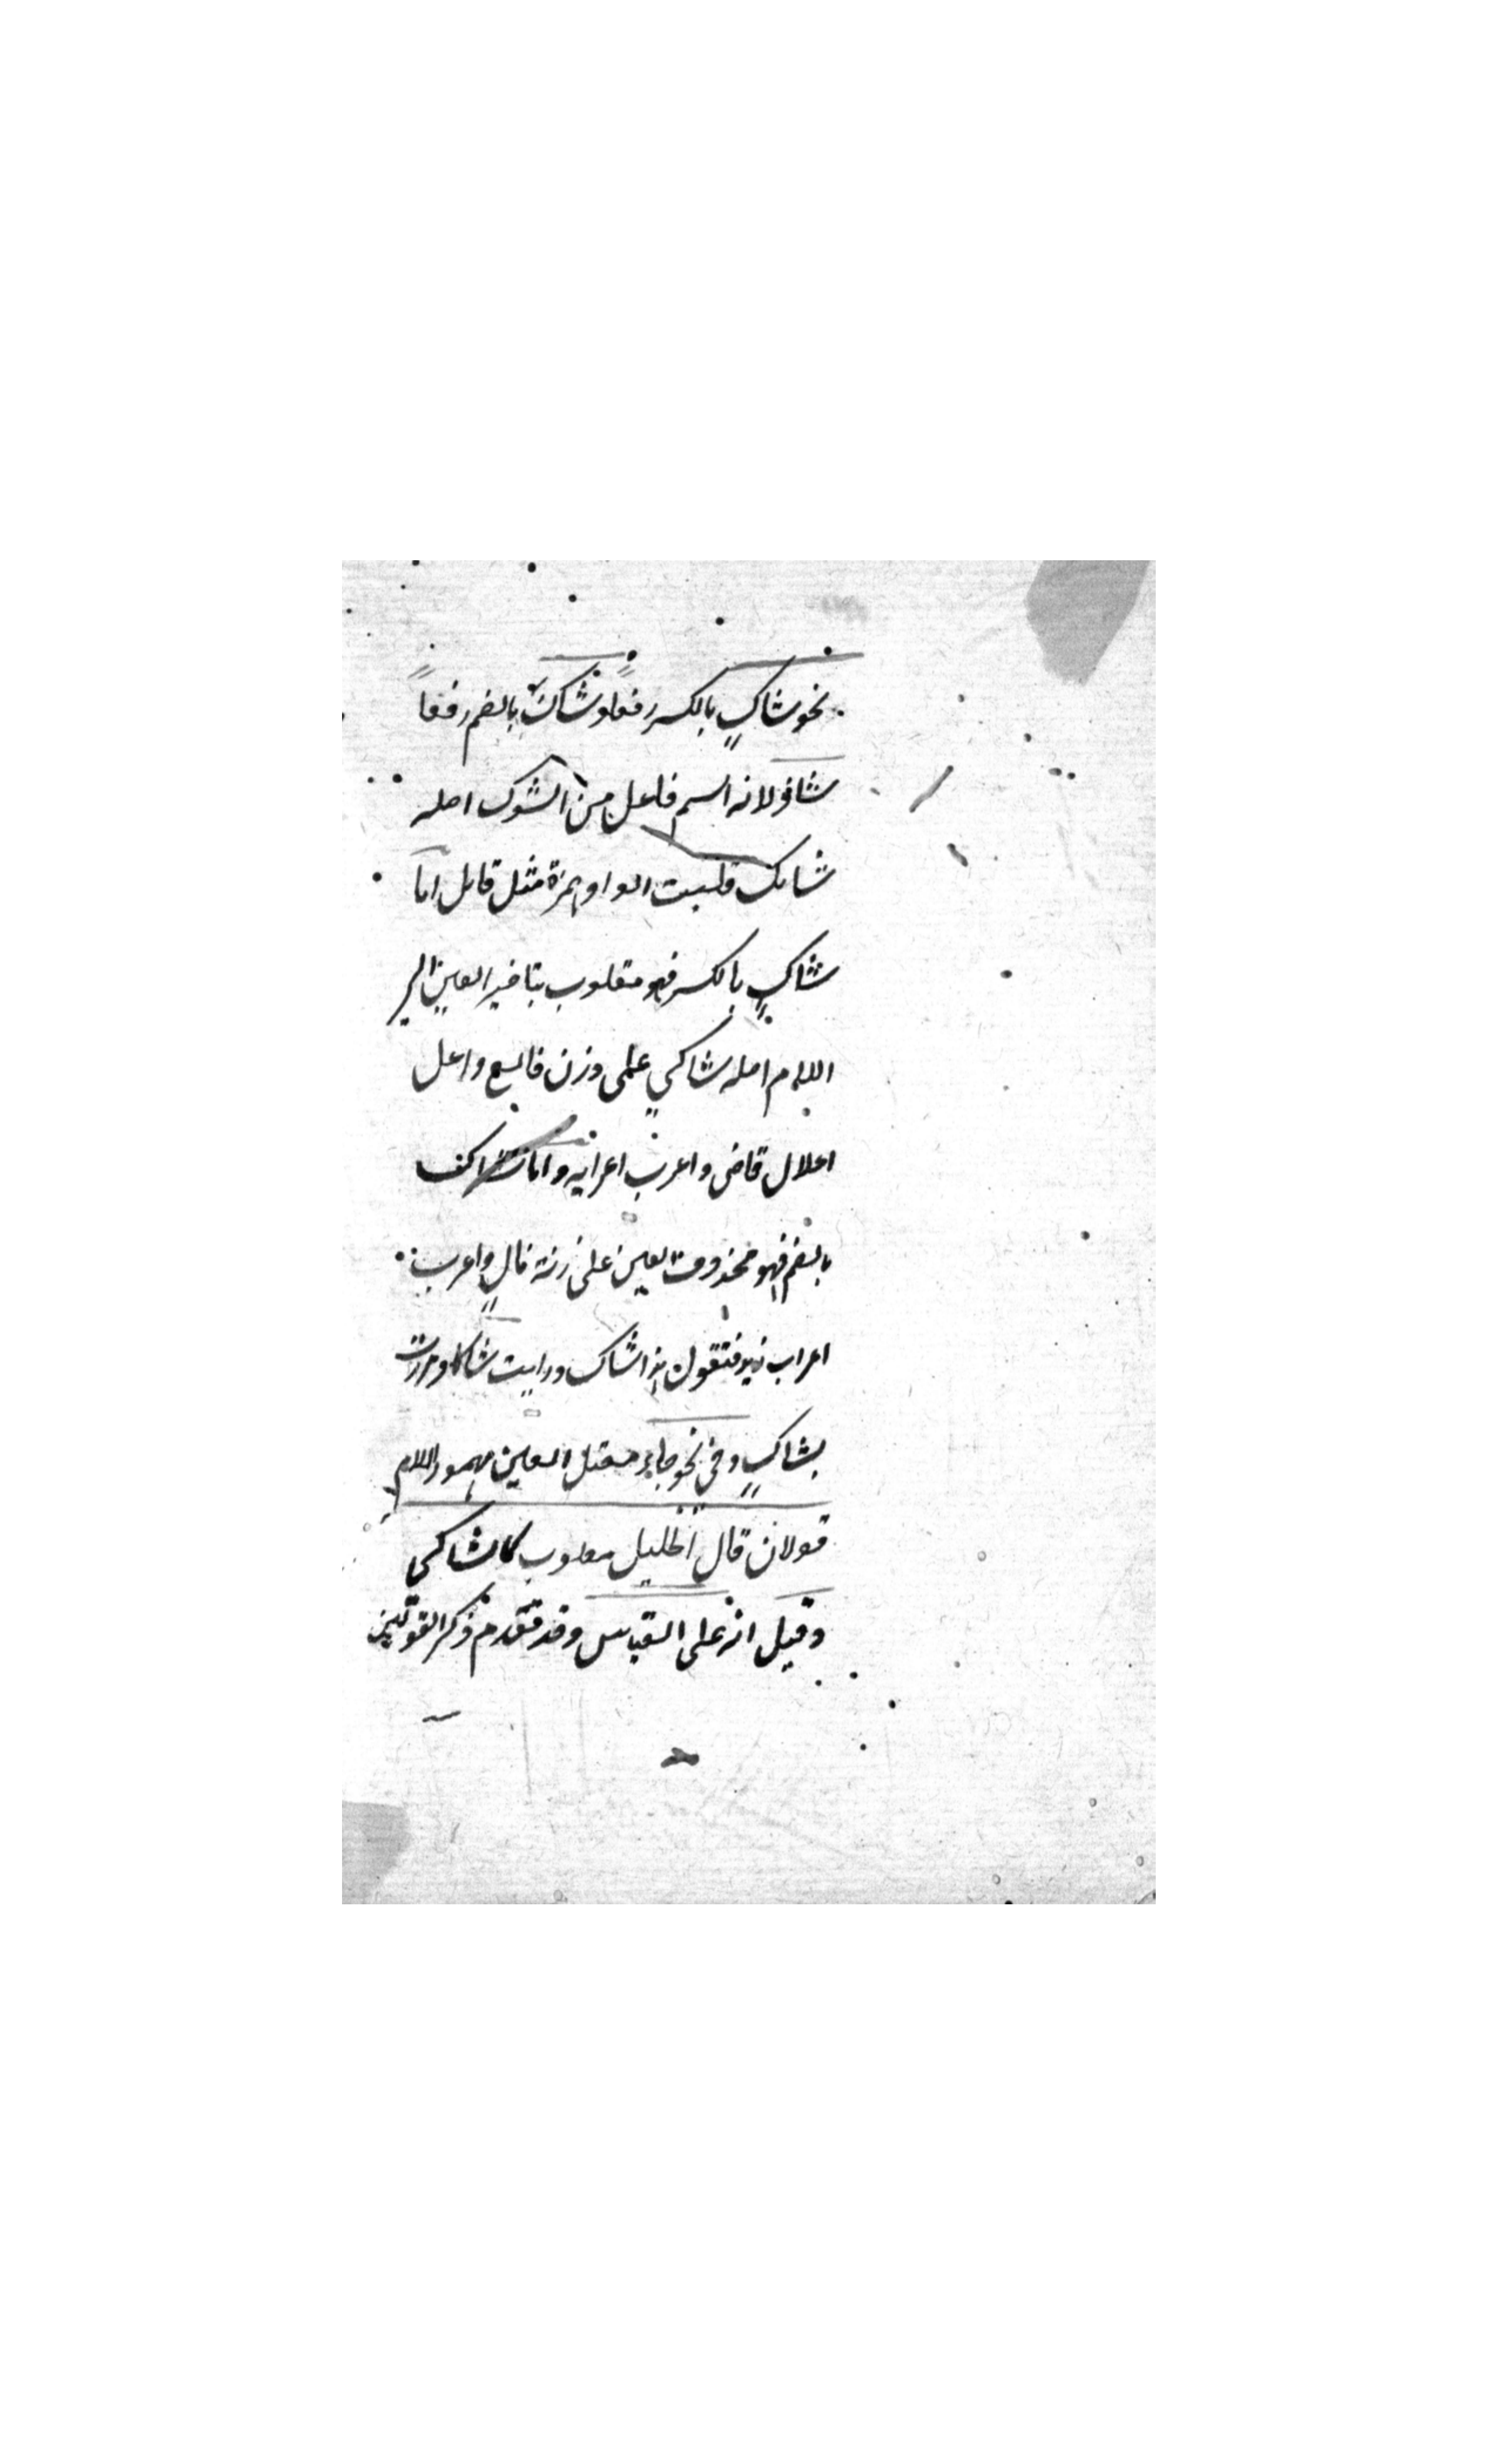 نحو شاكٍ بالكسر رفعاً وشاكٌ بالضم رفعاً
شاذ لانه اسم فاعل من الشوك اصله
شاىك قلبت الواو همزة مثل قائل اما
شاكٍ بالكسر فهو مقلوب بتاخير العين الى
اللام اصله شاكيٍ على وزن فالع واعل
اعلال قاض واعرب اعرابه واما شاك
بالضم فهو محذوف العين على زنة فالٍ واعرب
اعراب زيد فتقول هذا شاك ورايت شاكا ومررت
بشاكٍ وفي نحو جاءٍ معتل العين مهموز اللام
قولان قال الخليل مقلوب كالشاكي
وقيل انه على القياس وقد تقدم ذكر القولين